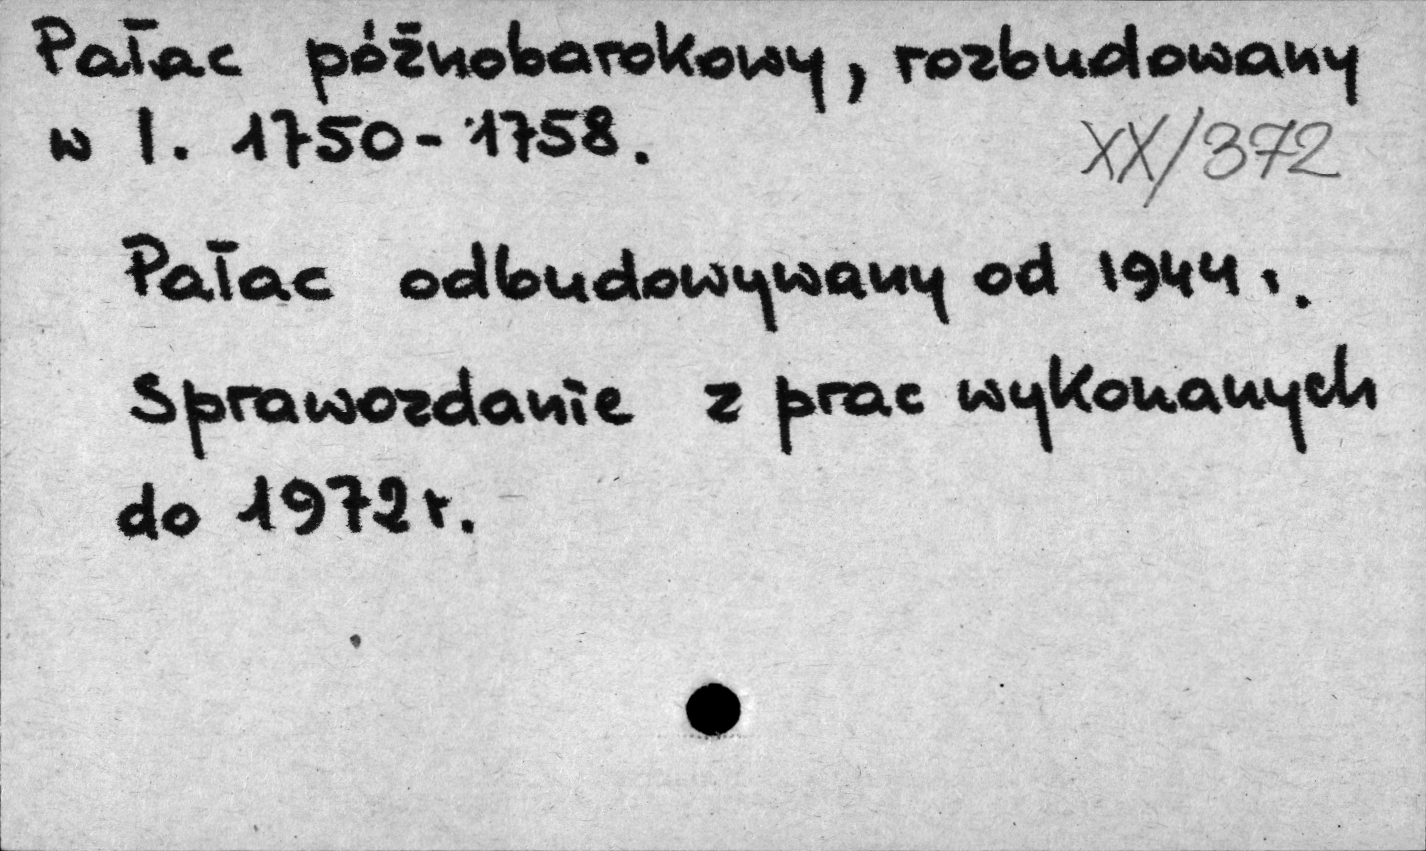 Pałac późnobarokowy, rozbudowany
w l. 1750-1758.
XX/372
Pałac odbudowywany od 1944 r.
Sprawozdanie z prac wykonanych
do 1972 r.